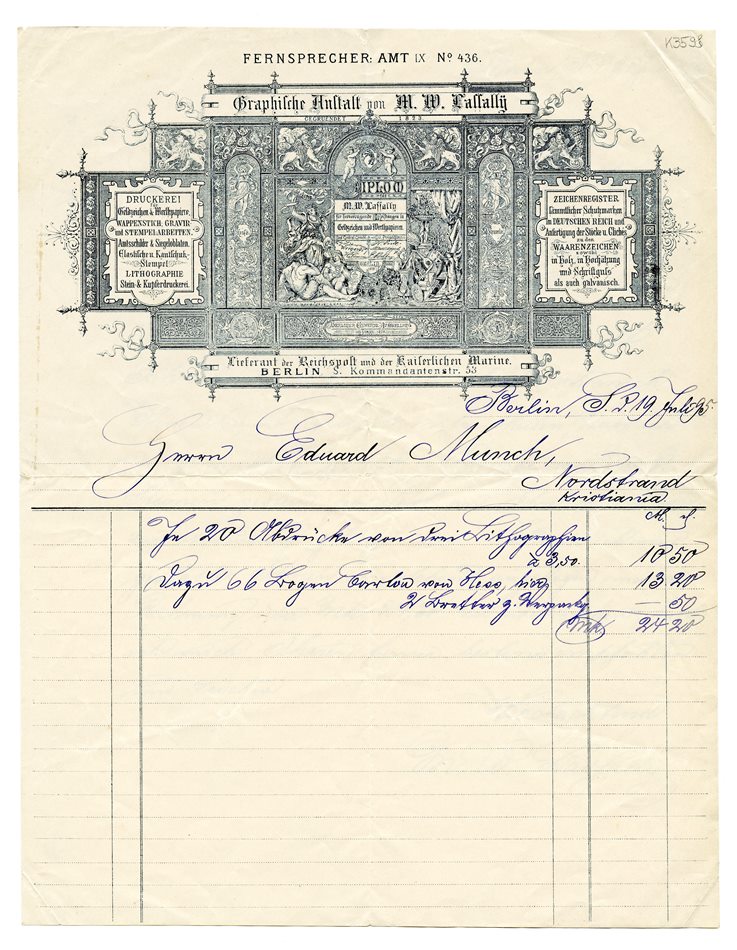 K3598
FERNSPRECHER: AMT IX Nº 436.
Graphische Anstalt von M. W. Lassally
GEGRÜNDET 1833
DIPLOM
M. W. Lassally
für hervorragende Leistungen in
Geldzeichen und Werthpapieren.
DRUCKEREI
für
Geldzeichen & Werthpapiere.
WAPPENSTICH, GRAVIR
und STEMPELARBEITEN.
Amtsschilder & Siegeloblaten.
Elastische u. Kautschuk-
Stempel
LITHOGRAPHIE
Stein- & Kupferdruckerei.
ZEICHENREGISTER
sämmtlicher Schutzmarken
im DEUTSCHEN REICH und
Anfertigung der Stöcke u. Clichés
zu den
WAARENZEICHEN
sowohl
in Holz, in Hochätzung
und Schriftguss
als auch galvanisch.
Lieferant der Reichspost und der Kaiserlichen Marine.
BERLIN. S. Kommandantenstr. 53
Berlin, S. d. 19 Juli 95.
Herrn Eduard Munch,
Nordstrand
Kristiania
M. d.
Je 20 Abdrücke von drei Lithographien
à 3,50. 10 50
Dazu 66 Bogen Carton von Hess, 13 20
2 Bretter z. Verpackg — 50
Mk 24 20